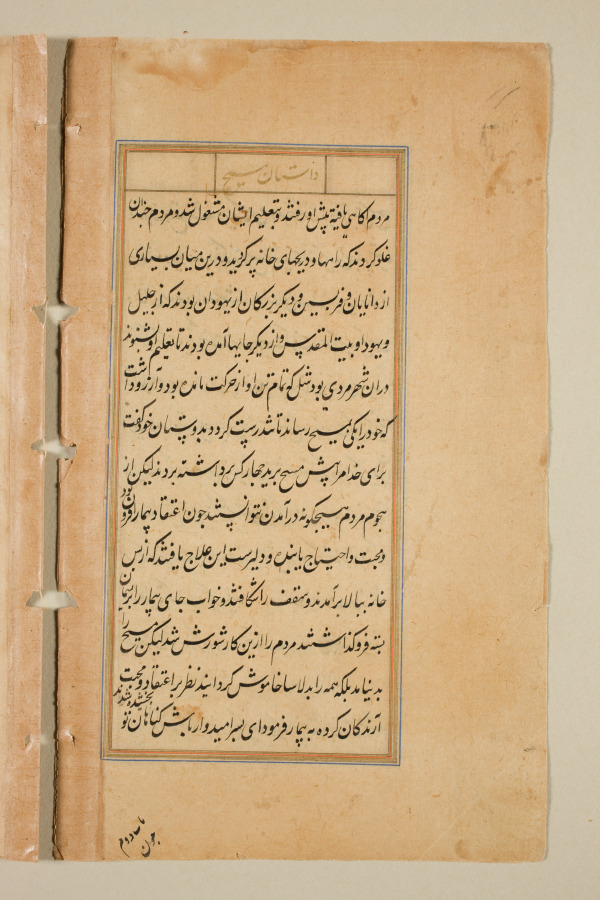 داستان مسیح
مردم اکاهی یافته پیش او رفتند و بتعلیم ایشان مشغول شد و مردم چندان
غلو کردند که راهها و دریچهای خانه پر کردید و درین میان بسیاری
از دانایان و فریسین و دیکر بزرکان از یهودان بودند که از جلیل
و یهودا و بیت المقدس و از دیکر جایها آمده بودند تا تعلیم او بشنوند
دران شهر مردی بود شل که تمام تن او از حرکت مانده بود و آرزو داشت
که خود را بمسیح رساند تا تندرست کردد بدوستان خود کفت
برای خدا مرا پیش مسیح برید چهار کس برداشته بردند لیکن از
هجوم مردم هیچکونه درآمدن نتوانستند چون اعتقاد بیمار افزون بود
و محبت و احتیاج یابنده و دلیرست این علاج یافتند که از پس
خانه ببالا برآمدند و سقف را شکافتند و خواب جای بیمار را بریسمان
بسته فرو کذاشتند مردم را ازین کار شورش شد لیکن مسیح را
بد نیامد بلکه همه را بدلاسا خاموش کردانید نظر بر اعتقاد و محبت
آرندکان کرده به بیمار فرمود ای پسر امیدوار باش کناهان تو بخشیده شدند
چون